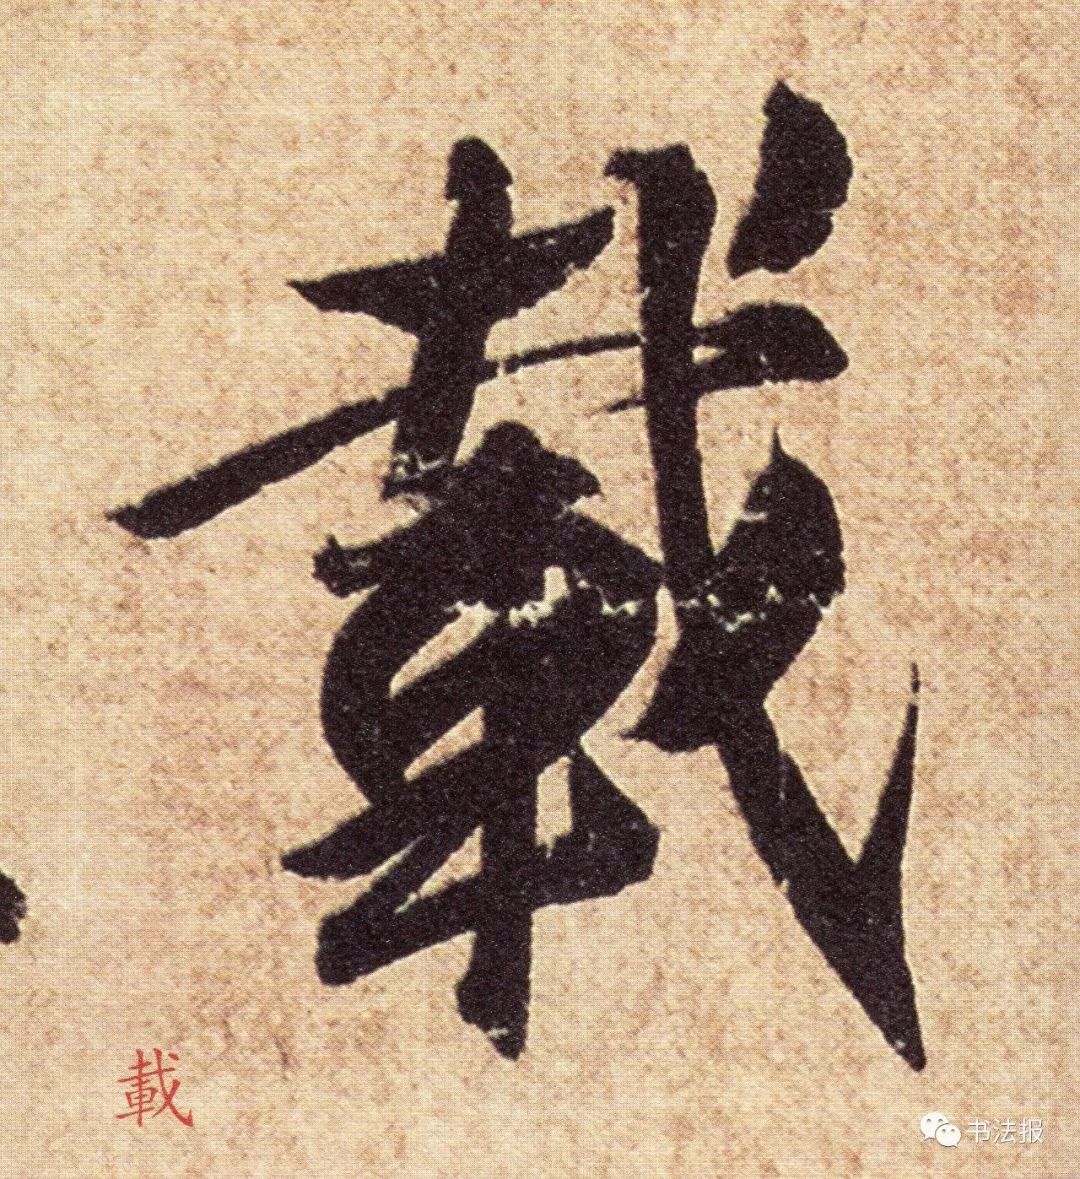 載
載
书法报